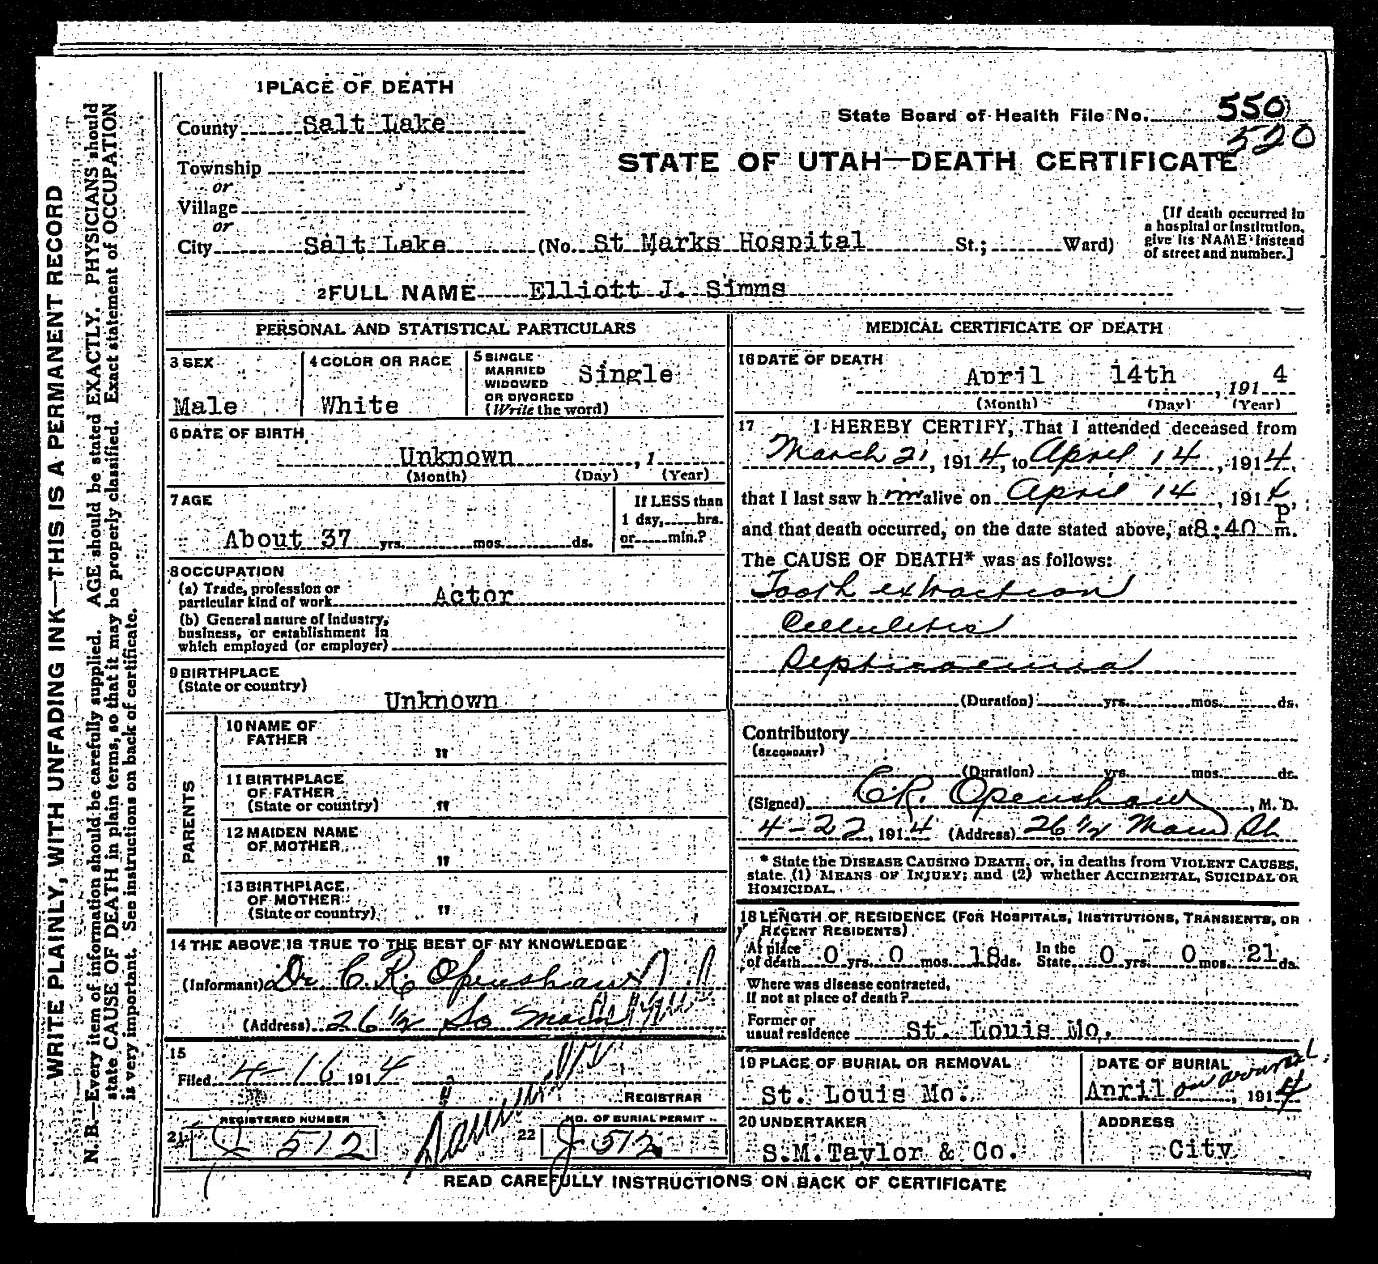 1 PLACE OF DEATH
County Salt Lake
State Board of Health File No. 550
520
STATE OF UTAH—DEATH CERTIFICATE
Township
or
Village
or
City Salt Lake (No. St Marks Hospital St.; Ward)
[If death occurred in a hospital or institution, give its NAME instead of street and number.]
2 FULL NAME Elliott J. Simms
PERSONAL AND STATISTICAL PARTICULARS
3 SEX
Male
4 COLOR OR RACE
White
5 SINGLE
MARRIED
WIDOWED
OR DIVORCED
(Write the word)
Single
6 DATE OF BIRTH
Unknown , 1
(Month) (Day) (Year)
7 AGE
About 37 yrs. mos. ds.
If LESS than
1 day, hrs.
or min.?
8 OCCUPATION
(a) Trade, profession or
particular kind of work Actor
(b) General nature of Industry,
business, or establishment in
which employed (or employer)
9 BIRTHPLACE
(State or country)
Unknown
PARENTS
10 NAME OF
FATHER "
11 BIRTHPLACE
OF FATHER
(State or country) "
12 MAIDEN NAME
OF MOTHER "
13 BIRTHPLACE
OF MOTHER
(State or country) "
14 THE ABOVE IS TRUE TO THE BEST OF MY KNOWLEDGE
(Informant) Dr C. R. Openshaw
(Address) 26 1/2 So Main
15
Filed 4-16 1914
REGISTRAR
REGISTERED NUMBER
21 J 512
NO. OF BURIAL PERMIT
22 J 512
MEDICAL CERTIFICATE OF DEATH
16 DATE OF DEATH
April 14th , 191 4
(Month) (Day) (Year)
17 I HEREBY CERTIFY, That I attended deceased from
March 21, 1914, to April 14, 1914,
that I last saw him alive on April 14, 1914,
and that death occurred, on the date stated above, at 8:40 P m.
The CAUSE OF DEATH* was as follows:
Tooth extraction
Cellulitis
Septicaemia
(Duration) yrs. mos. ds.
Contributory
(SECONDARY)
(Duration) yrs. mos. ds.
(Signed) C.R. Openshaw, M. D.
4-22, 1914 (Address) 26 1/2 Main St
* State the DISEASE CAUSING DEATH, or, in deaths from VIOLENT CAUSES,
state (1) MEANS OF INJURY; and (2) whether ACCIDENTAL, SUICIDAL OR
HOMICIDAL.
18 LENGTH OF RESIDENCE (FOR HOSPITALS, INSTITUTIONS, TRANSIENTS, OR
RECENT RESIDENTS)
At place
of death 0 yrs. 0 mos. 18 ds. In the
State 0 yrs. 0 mos. 21 ds.
Where was disease contracted,
if not at place of death?
Former or
usual residence St. Louis Mo.
19 PLACE OF BURIAL OR REMOVAL
St. Louis Mo.
DATE OF BURIAL
April on arrival, 1914
20 UNDERTAKER
S.M. Taylor & Co.
ADDRESS
City
READ CAREFULLY INSTRUCTIONS ON BACK OF CERTIFICATE
WRITE PLAINLY, WITH UNFADING INK—THIS IS A PERMANENT RECORD
N. B.—Every item of information should be carefully supplied. AGE should be stated EXACTLY. PHYSICIANS should
state CAUSE OF DEATH in plain terms, so that it may be properly classified. Exact statement of OCCUPATION
is very important. See instructions on back of certificate.